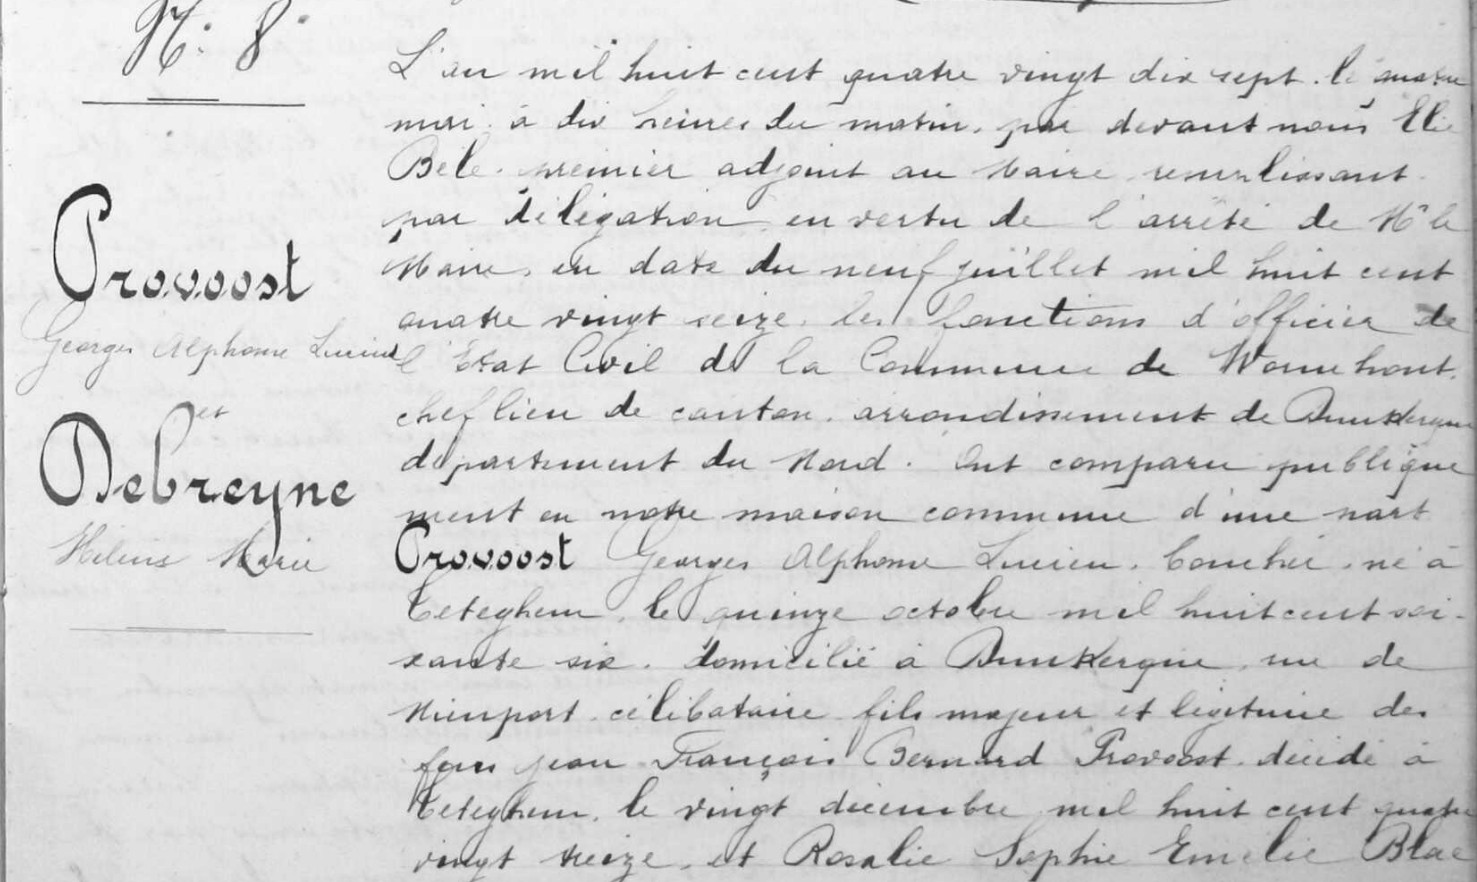 N° 8
Provoost
Georges Alphonse Lucien
et
Debreyne
Hélène Marie
L'an mil huit cent quatre vingt dix sept. le quatre
mai à dix heures du matin, par devant nous Elie
Bele. premier adjoint au Maire remplissant
par délégation en vertu de l'arrêté de Mr le
Maire, en date du neuf juillet mil huit cent
quatre vingt seize, les fonctions d'officier de
l'Etat Civil de la Commune de Wormhout.
chef lieu de canton. arrondissement de Dunkerque
département du Nord. Ont comparu publique
ment en notre maison commune d'une part
Provoost Georges Alphonse Lucien, né à
Teteghem, le quinze octobre mil huit cent soi-
xante six. domicilié à Dunkerque, rue de
Nieuport. célibataire fils majeur et légitime des
feus Jean François Bernard Provoost. décédé à
Teteghem, le vingt décembre mil huit cent quatre
vingt treize, et Rosalie Sophie Emélie Blae